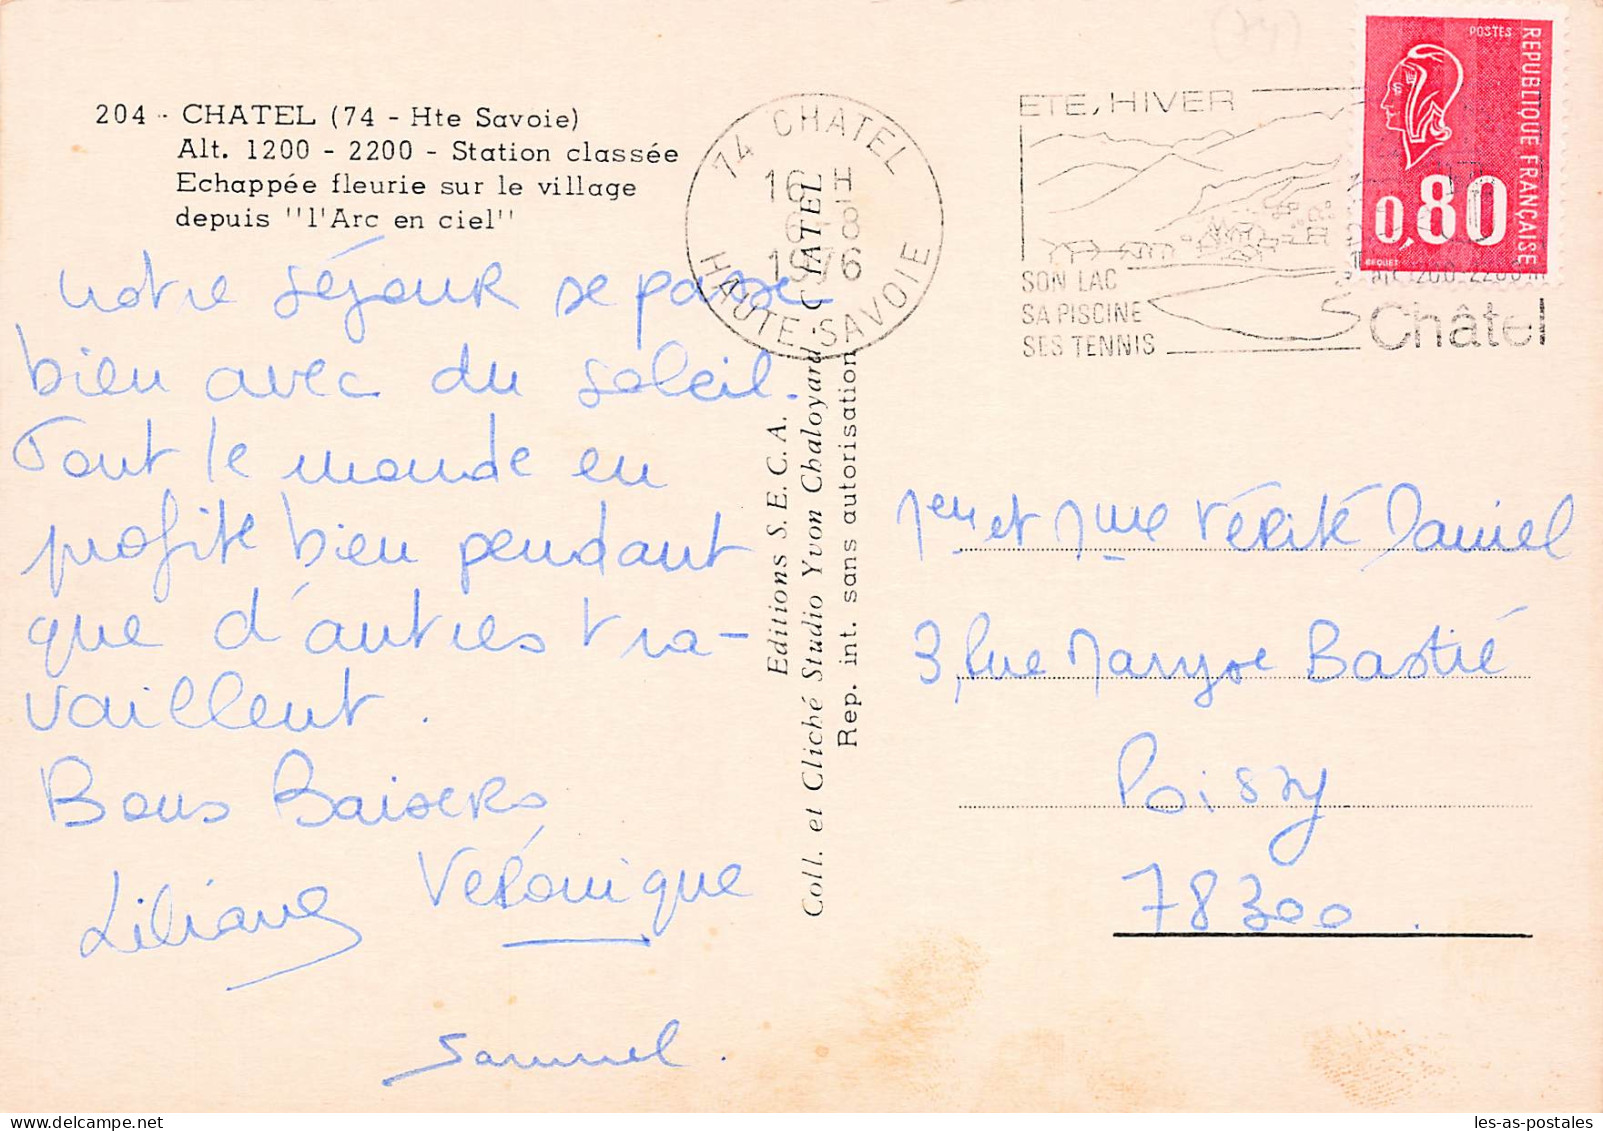 204 - CHATEL (74 - Hte Savoie)
Alt. 1200 - 2200 - Station classée
Echappée fleurie sur le village
depuis "l'Arc en ciel"
notre séjour se passe
bien avec du soleil.
Tout le monde en
profite bien pendant
que d'autres tra-
vaillent.
Bons Baisers
Véronique
Liliane
Samuel.
Editions S.E.C.A.
Coll. et Cliché Studio Yvon Chaloyard - CHATEL
Rep. int. sans autorisation
74 CHATEL
16 H
6-8
1976
HAUTE-SAVOIE
ETE, HIVER
SON LAC
SA PISCINE
SES TENNIS
Alt. 1200-2200m
Châtel
(74)
POSTES
REPUBLIQUE FRANÇAISE
0,80
BEQUET
Mr et Mme Vérité Daniel
3, Rue Maryse Bastié
Poissy
78300.
les-as-postales